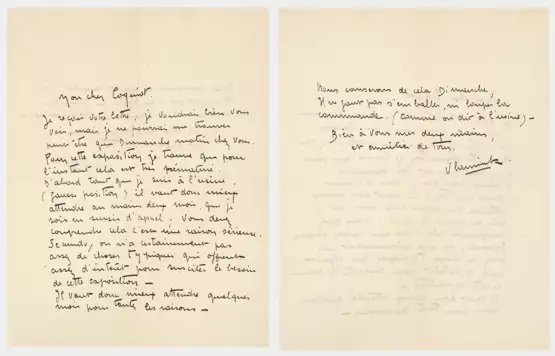 Mon cher Coquiot.
Je reçois votre lettre, je voudrais bien vous
voir, mais je ne pourrai me trouver
peut-être que Dimanche matin chez vous.
Pour cette exposition, je trouve que pour
l'instant cela est très prématuré.
D'abord tant que je suis à l'usine,
(fausse position) il vaut donc mieux
attendre au moins deux mois, que je
sois en sursis d'appel. Vous devez
comprendre cela c'est une raison sérieuse.
Secundo, on n'a certainement pas
assez de choses typiques qui offrent
assez d'intérêt pour susciter le besoin
de cette exposition —
Il vaut donc mieux attendre quelques
mois pour toutes les raisons —
Nous causerons de cela Dimanche,
Il ne faut pas s'emballer, ni louper la
commande. (comme on dit à l'usine) —
Bien à vous mes deux mains,
et amitiés de Tous.
Vlaminck